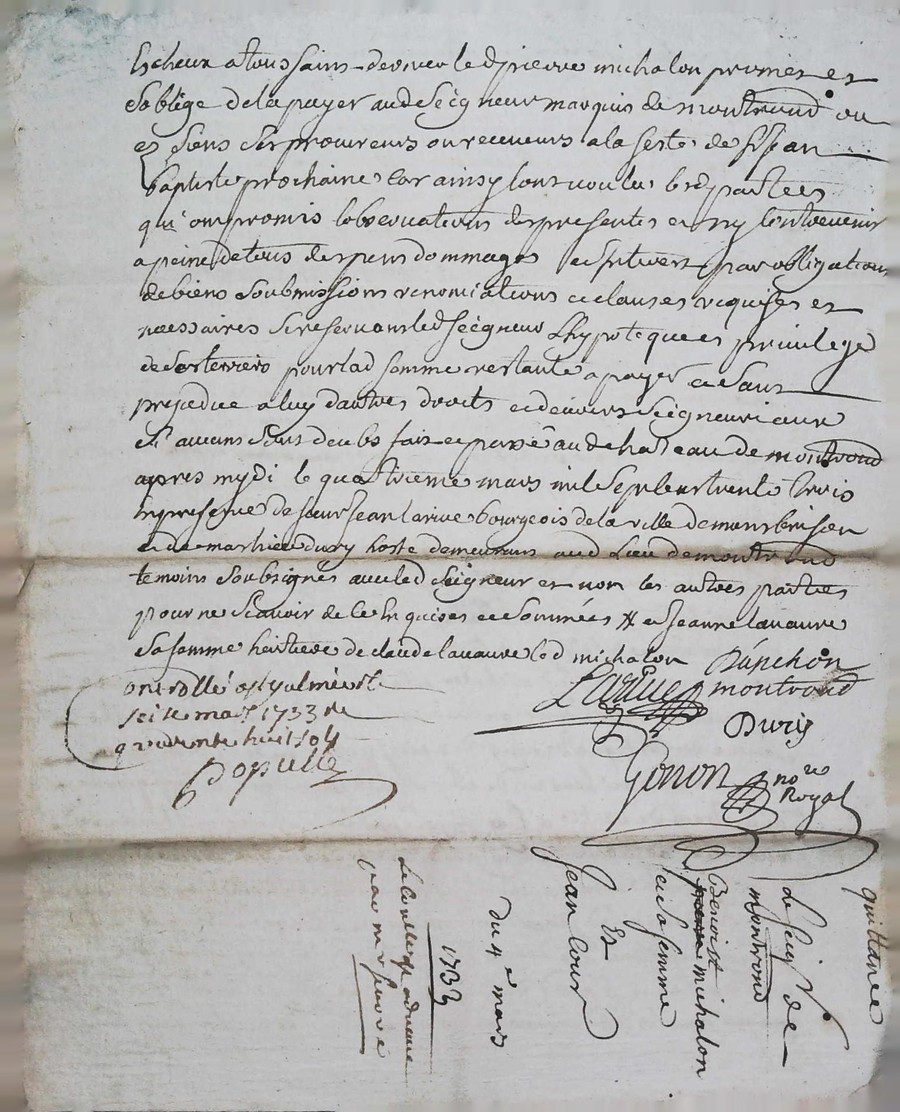 Escheux a tous sains dernier led pierre michalon promet et
soblige de la payer aud seigneur marquis de montrond ou
es siens ses procureurs ou receveurs a la feste de st jean
baptiste prochaine Car ainsy lont voulu lesd parties
qu'ont promis lobservations des presentes et ny Contrevenir
a peine de tous despens dommages par obligations
de biens soubmissions renonciations et clauses requises et
necessaires se reservant led seigneur Lhypoteque et privilege
de ses terriers pour lad somme restante a payer et sans
prejudice a luy dautres droits et devoirs seigneuriaux
fait et passé au chateau de montrond
apres mydi le quatrieme mars mil sept cent trente trois
en presence de sieur jean larive bourgeois de la ville de montbrison
et de mathieu dury hoste demeurant aud Lieu de montrond
temoins soubsignés avec led seigneur et non les autres parties
pour ne scavoir de ce Enquises et sommées # et jeanne lavaure
sa femme heritiere de claude lavaure led michalon
Dánchon
montrond
Larive
Dury
Gonon no.re
Royal
Controllé a
seize mars 1733 
quarente huit sols
Popülle
quittance
de seig.r de
montrond
Benoist
michalon
et sa femme
Et
jean Cour
du 4e mars
1733